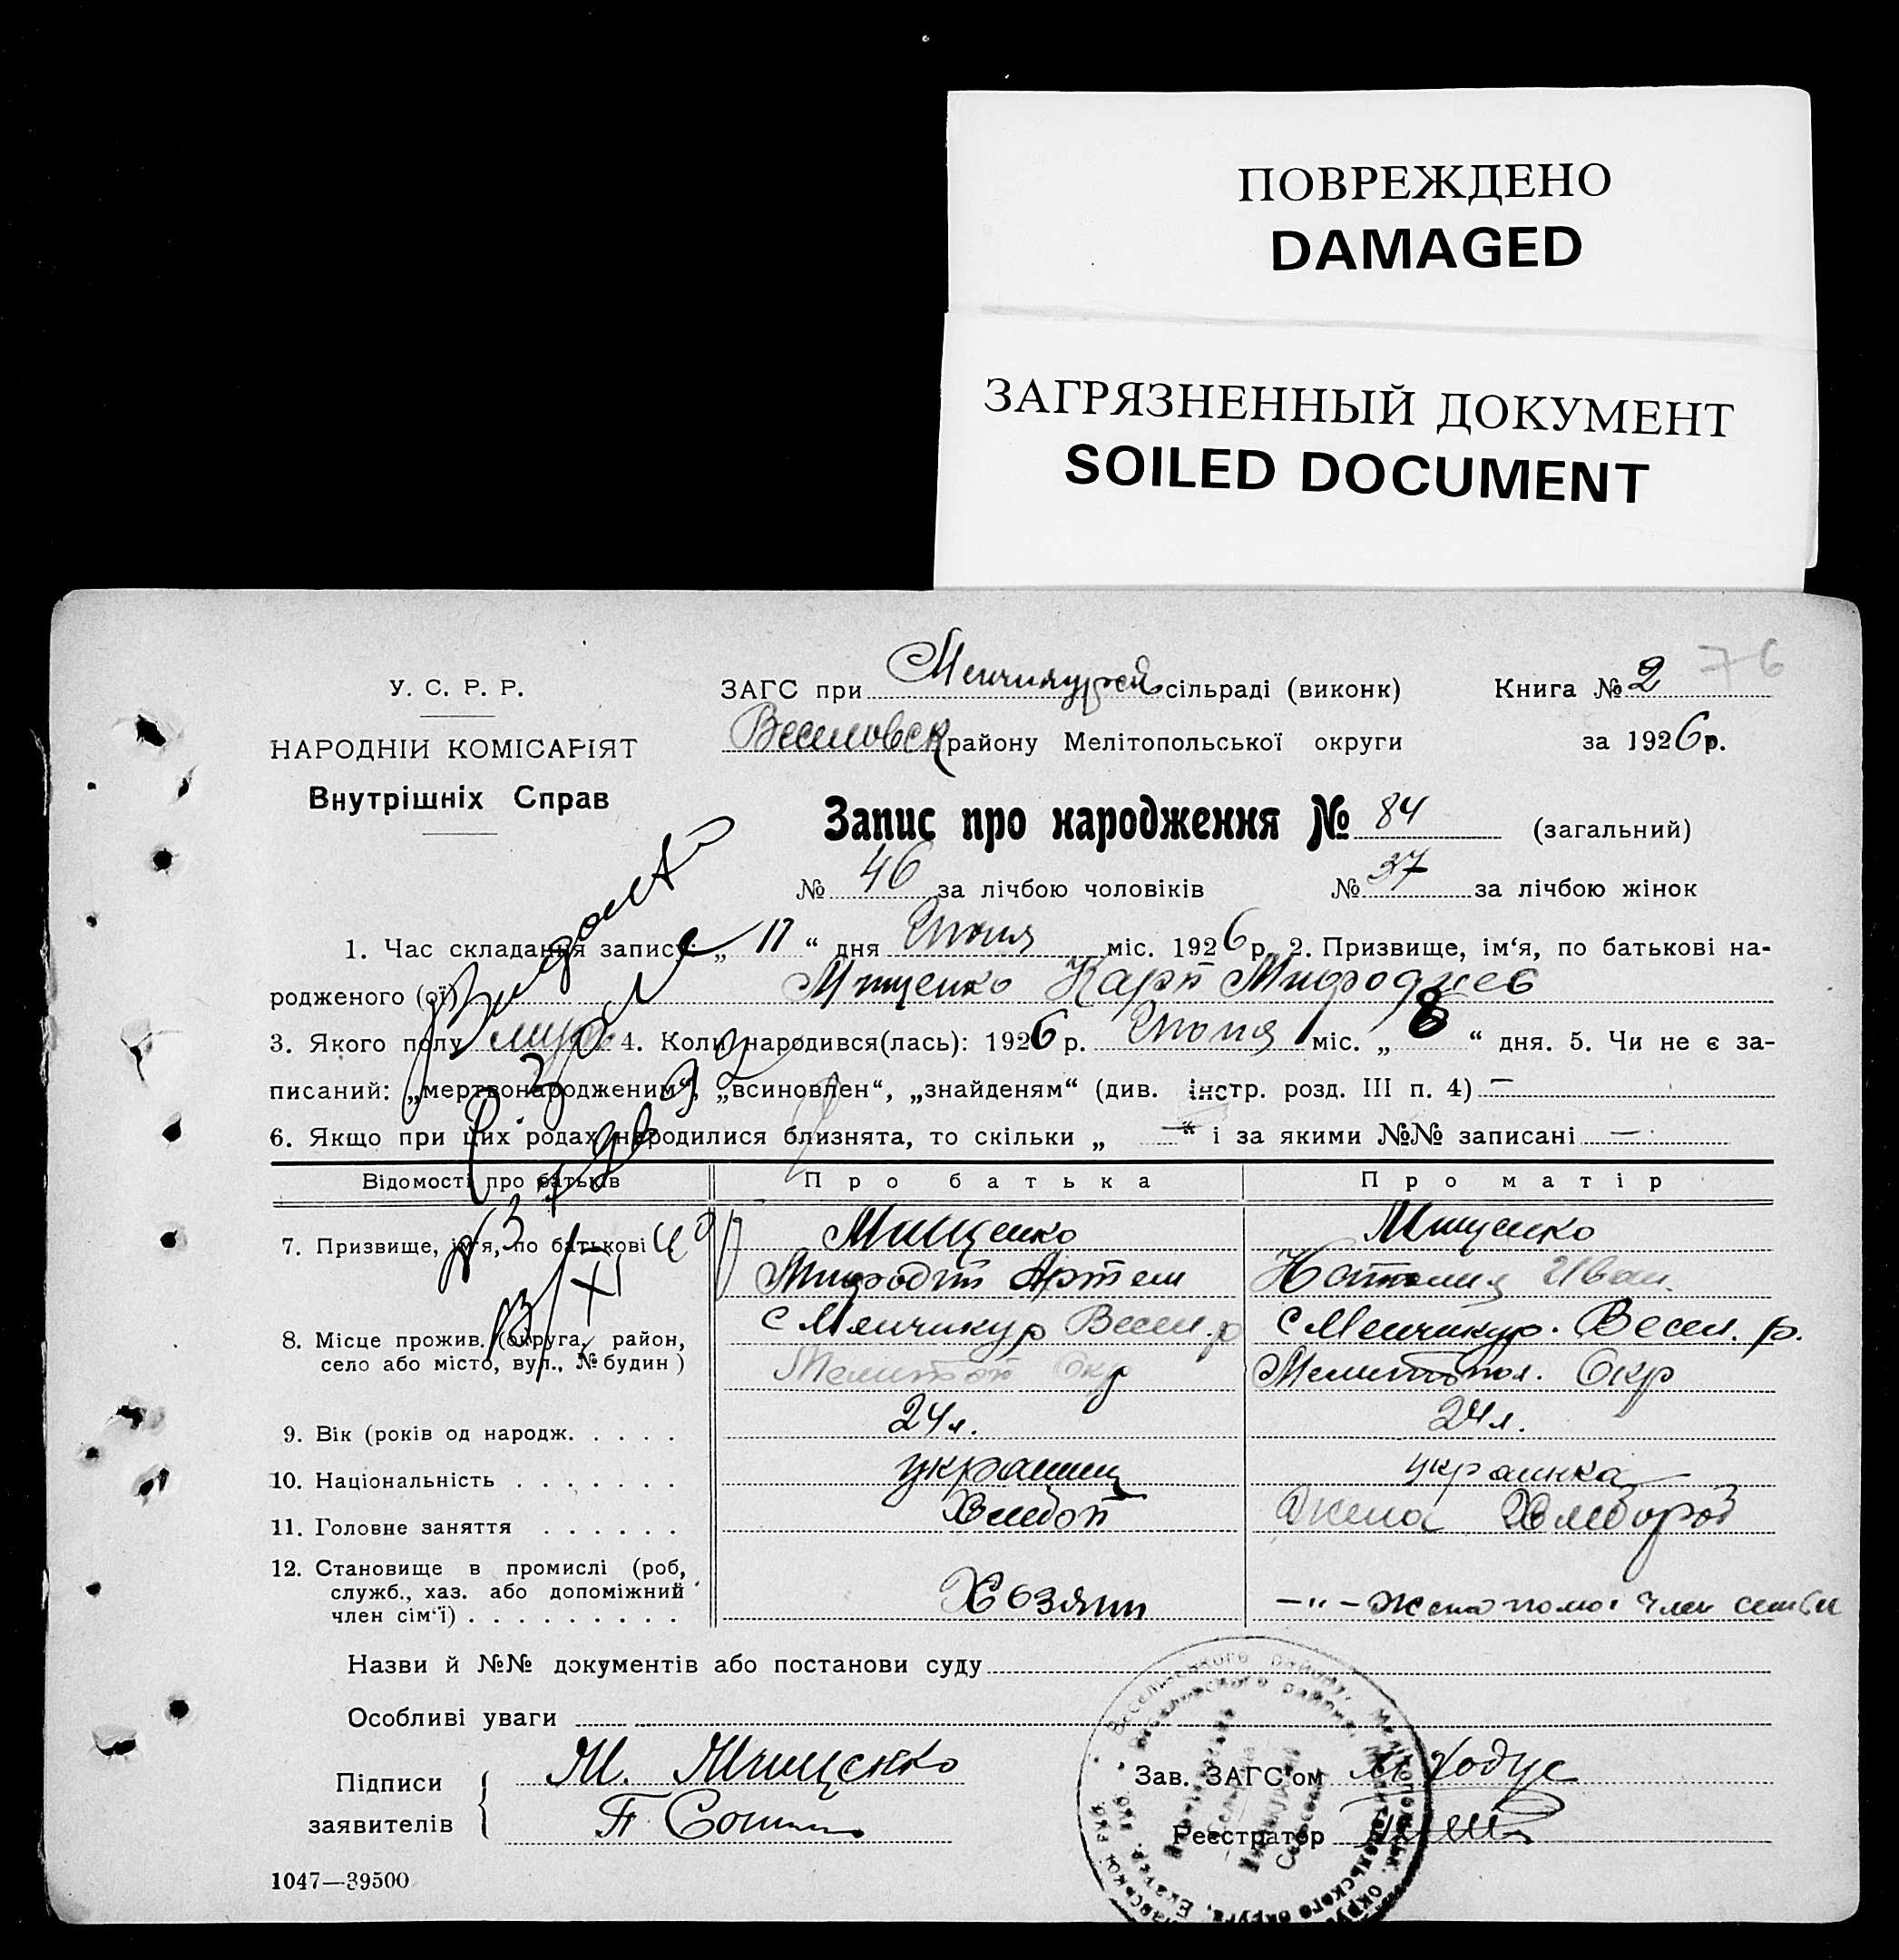 ПОВРЕЖДЕНО
DAMAGED
ЗАГРЯЗНЕННЫЙ ДОКУМЕНТ
SOILED DOCUMENT
76
У. С. Р. Р.
НАРОДНІЙ КОМІСАРІЯТ
Внутрішніх Справ
ЗАГС при сільраді (виконк) Книга № 2
Веселовск району Мелітопольської округи за 1926 р.
Запис про народження № 84 (загальний)
№ 46 за лічбою чоловіків № 37 за лічбою жінок
1. Час складання запису: „ 17 “ дня Июня міс. 1926 р. 2. Призвище, ім‘я, по батькові на-
родженого (ої) Мищенко Карп Мифодиев
3. Якого полу муж 4. Коли народився(лась): 1926 р. Июня міс. „ 8 “ дня. 5. Чи не є за-
писаний: „мертвонародженим“, „всиновлен“, „знайденям“ (див. інстр. розд. III п. 4) —
6. Якщо при цих родах народилися близнята, то скільки „ — “ і за якими №№ записані —
Відомості про батьків Про батька Про матір
7. Призвище, ім‘я, по батькові Мищенко Мищенко
Мифодий Артем Наталия Иван.
8. Місце прожив. (округа, район, с Менчикур Весел. р с Менчикур. Весел. р.
село або місто, вул., № будин) Мелитоп Окр Мелитопол. Окр
9. Вік (років од народж. . . . . 24 л. 24 л.
10. Національність . . . . . . . украинец украинка
11. Головне заняття . . . . . . Хлебоп Жена Хлебороб
12. Становище в промислі (роб,
служб., хаз. або допоміжний
член сім‘ї) . . . . . . . . . Хозяин —"— Жена помо. член семьи
Назви й №№ документів або постанови суду
Особливі уваги
Підписи М. Мищенко Зав. ЗАГС‘ом Ходус
заявителів П Реєстратор
1047—39500